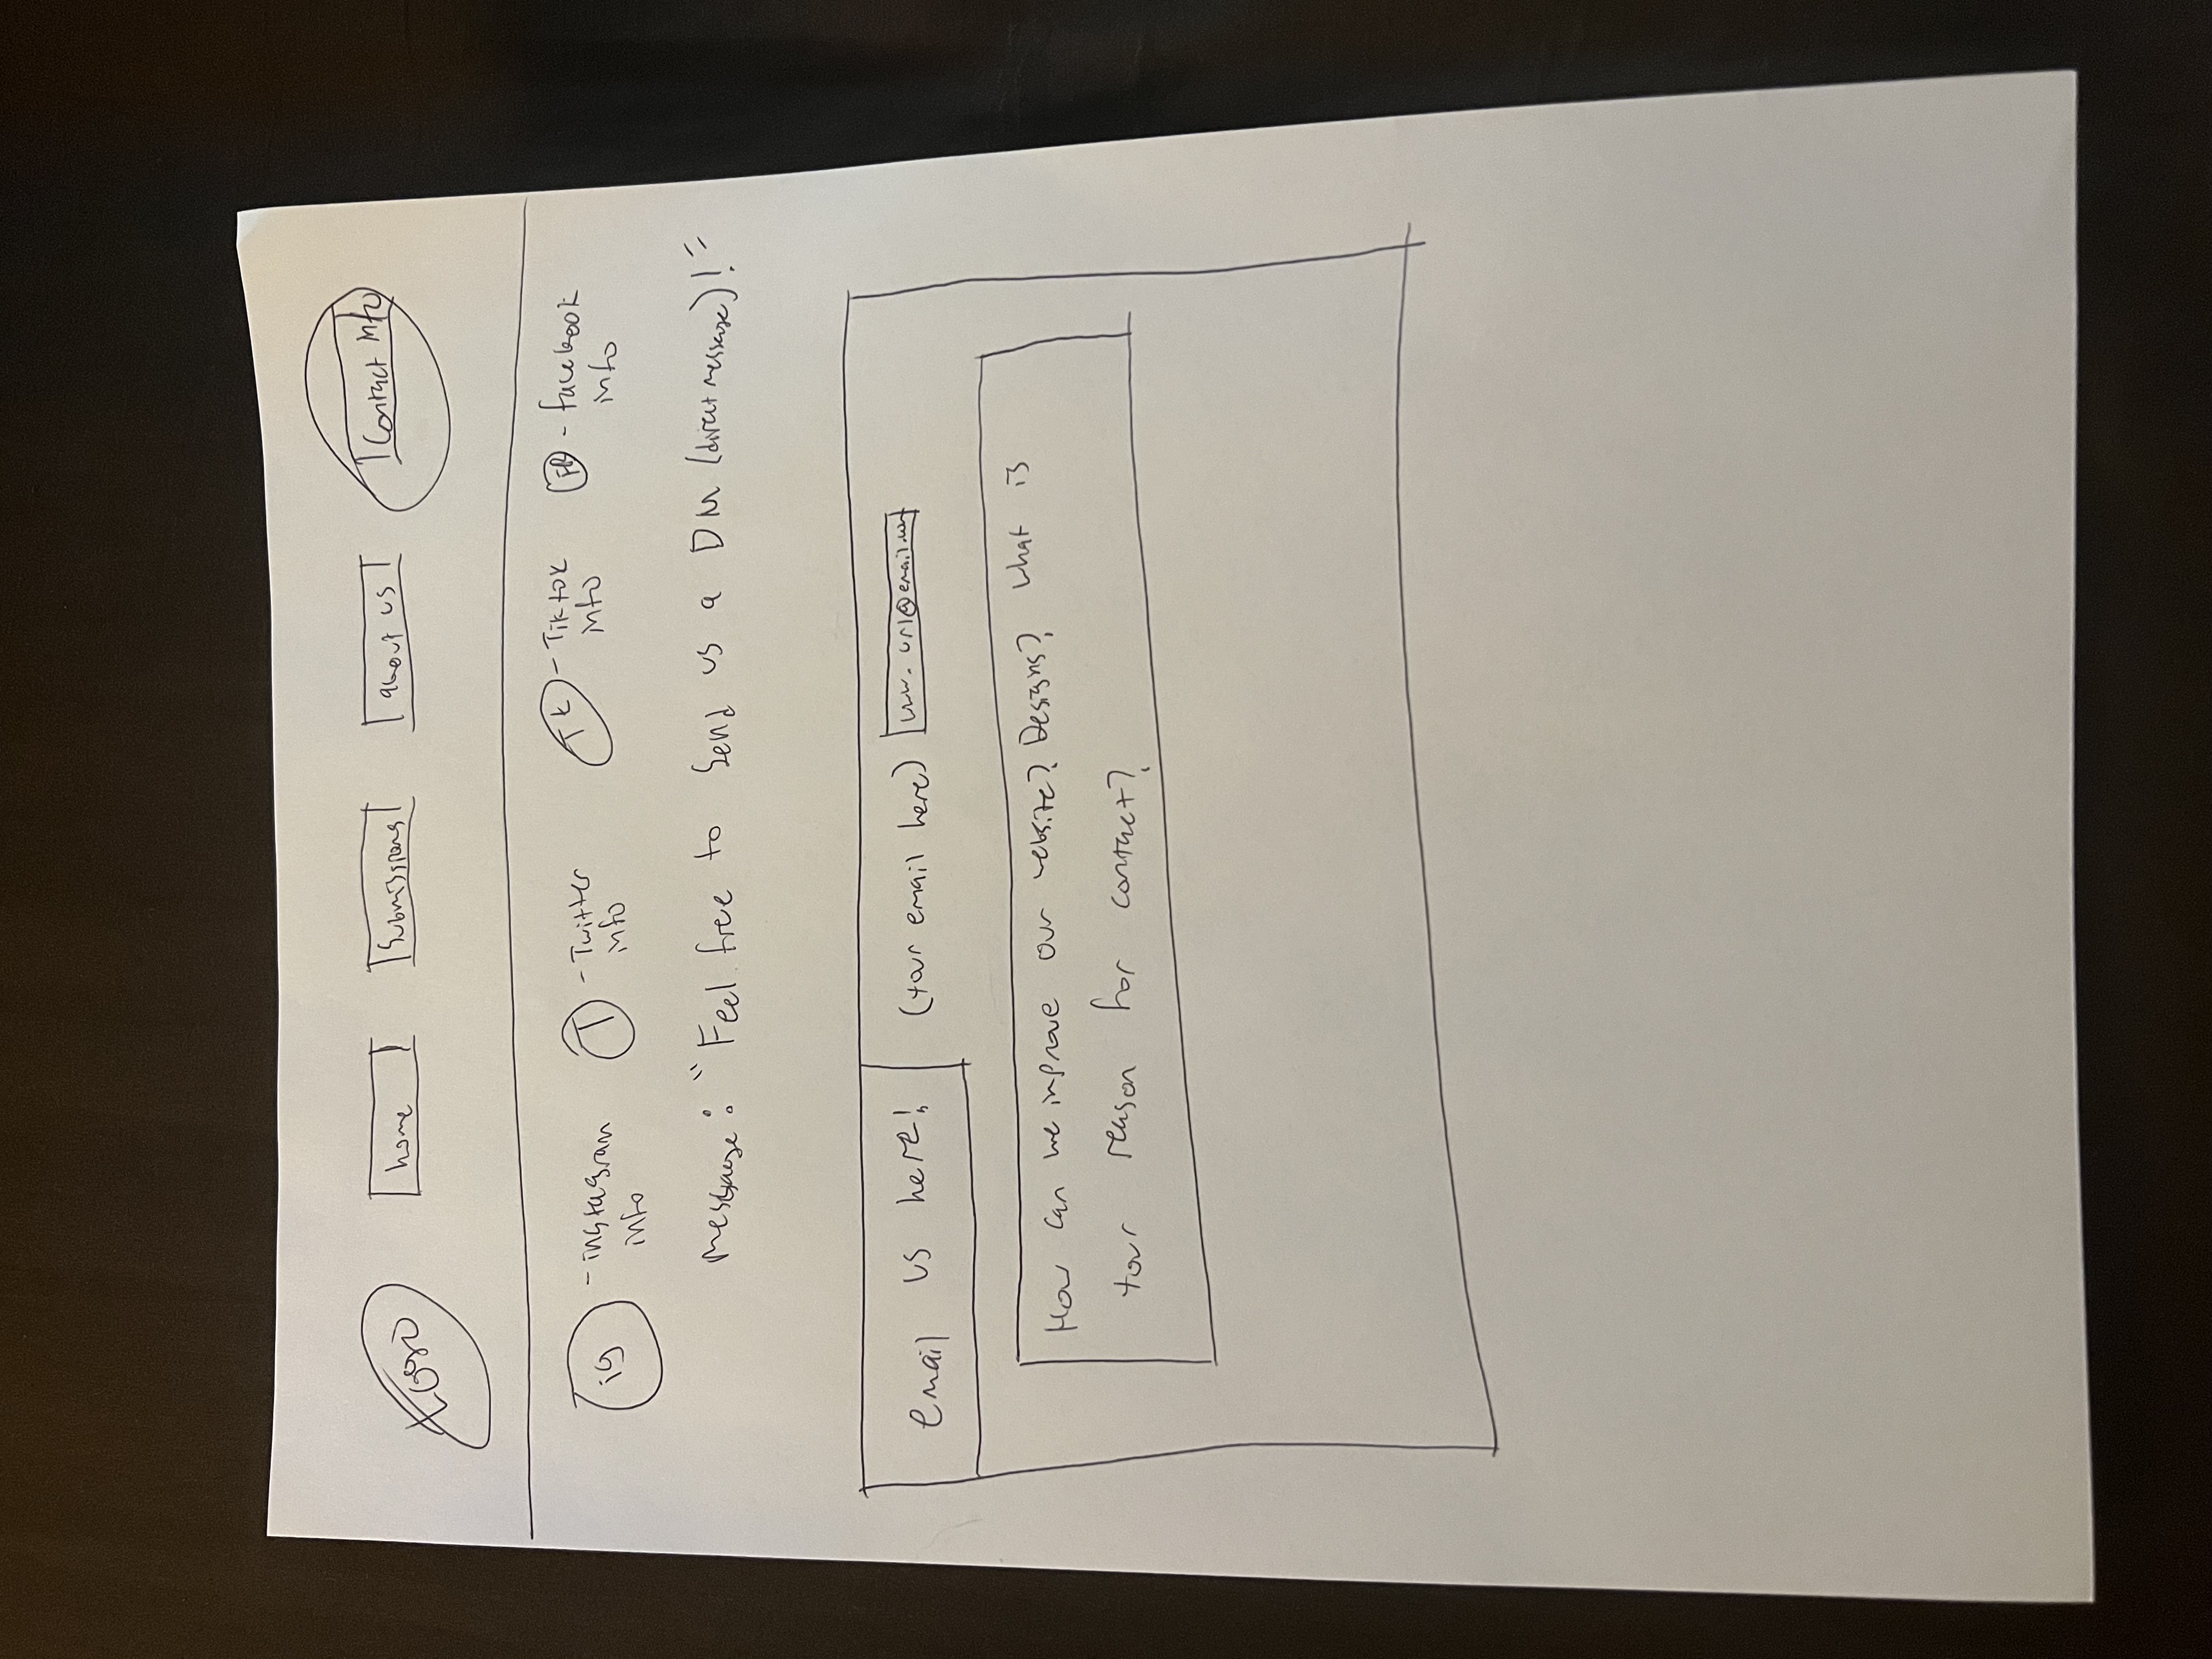 Logo
home
Submissions
about us
Contact info
ig
- instagram
info
T
- Twitter
info
TK
- Tiktok
info
FB
- facebook
info
Message: "Feel free to Send us a DM (direct message)!"
email us here!
(Your email here)
www.url@email.com
How can we improve our website? Designs? What is
your reason for contact?